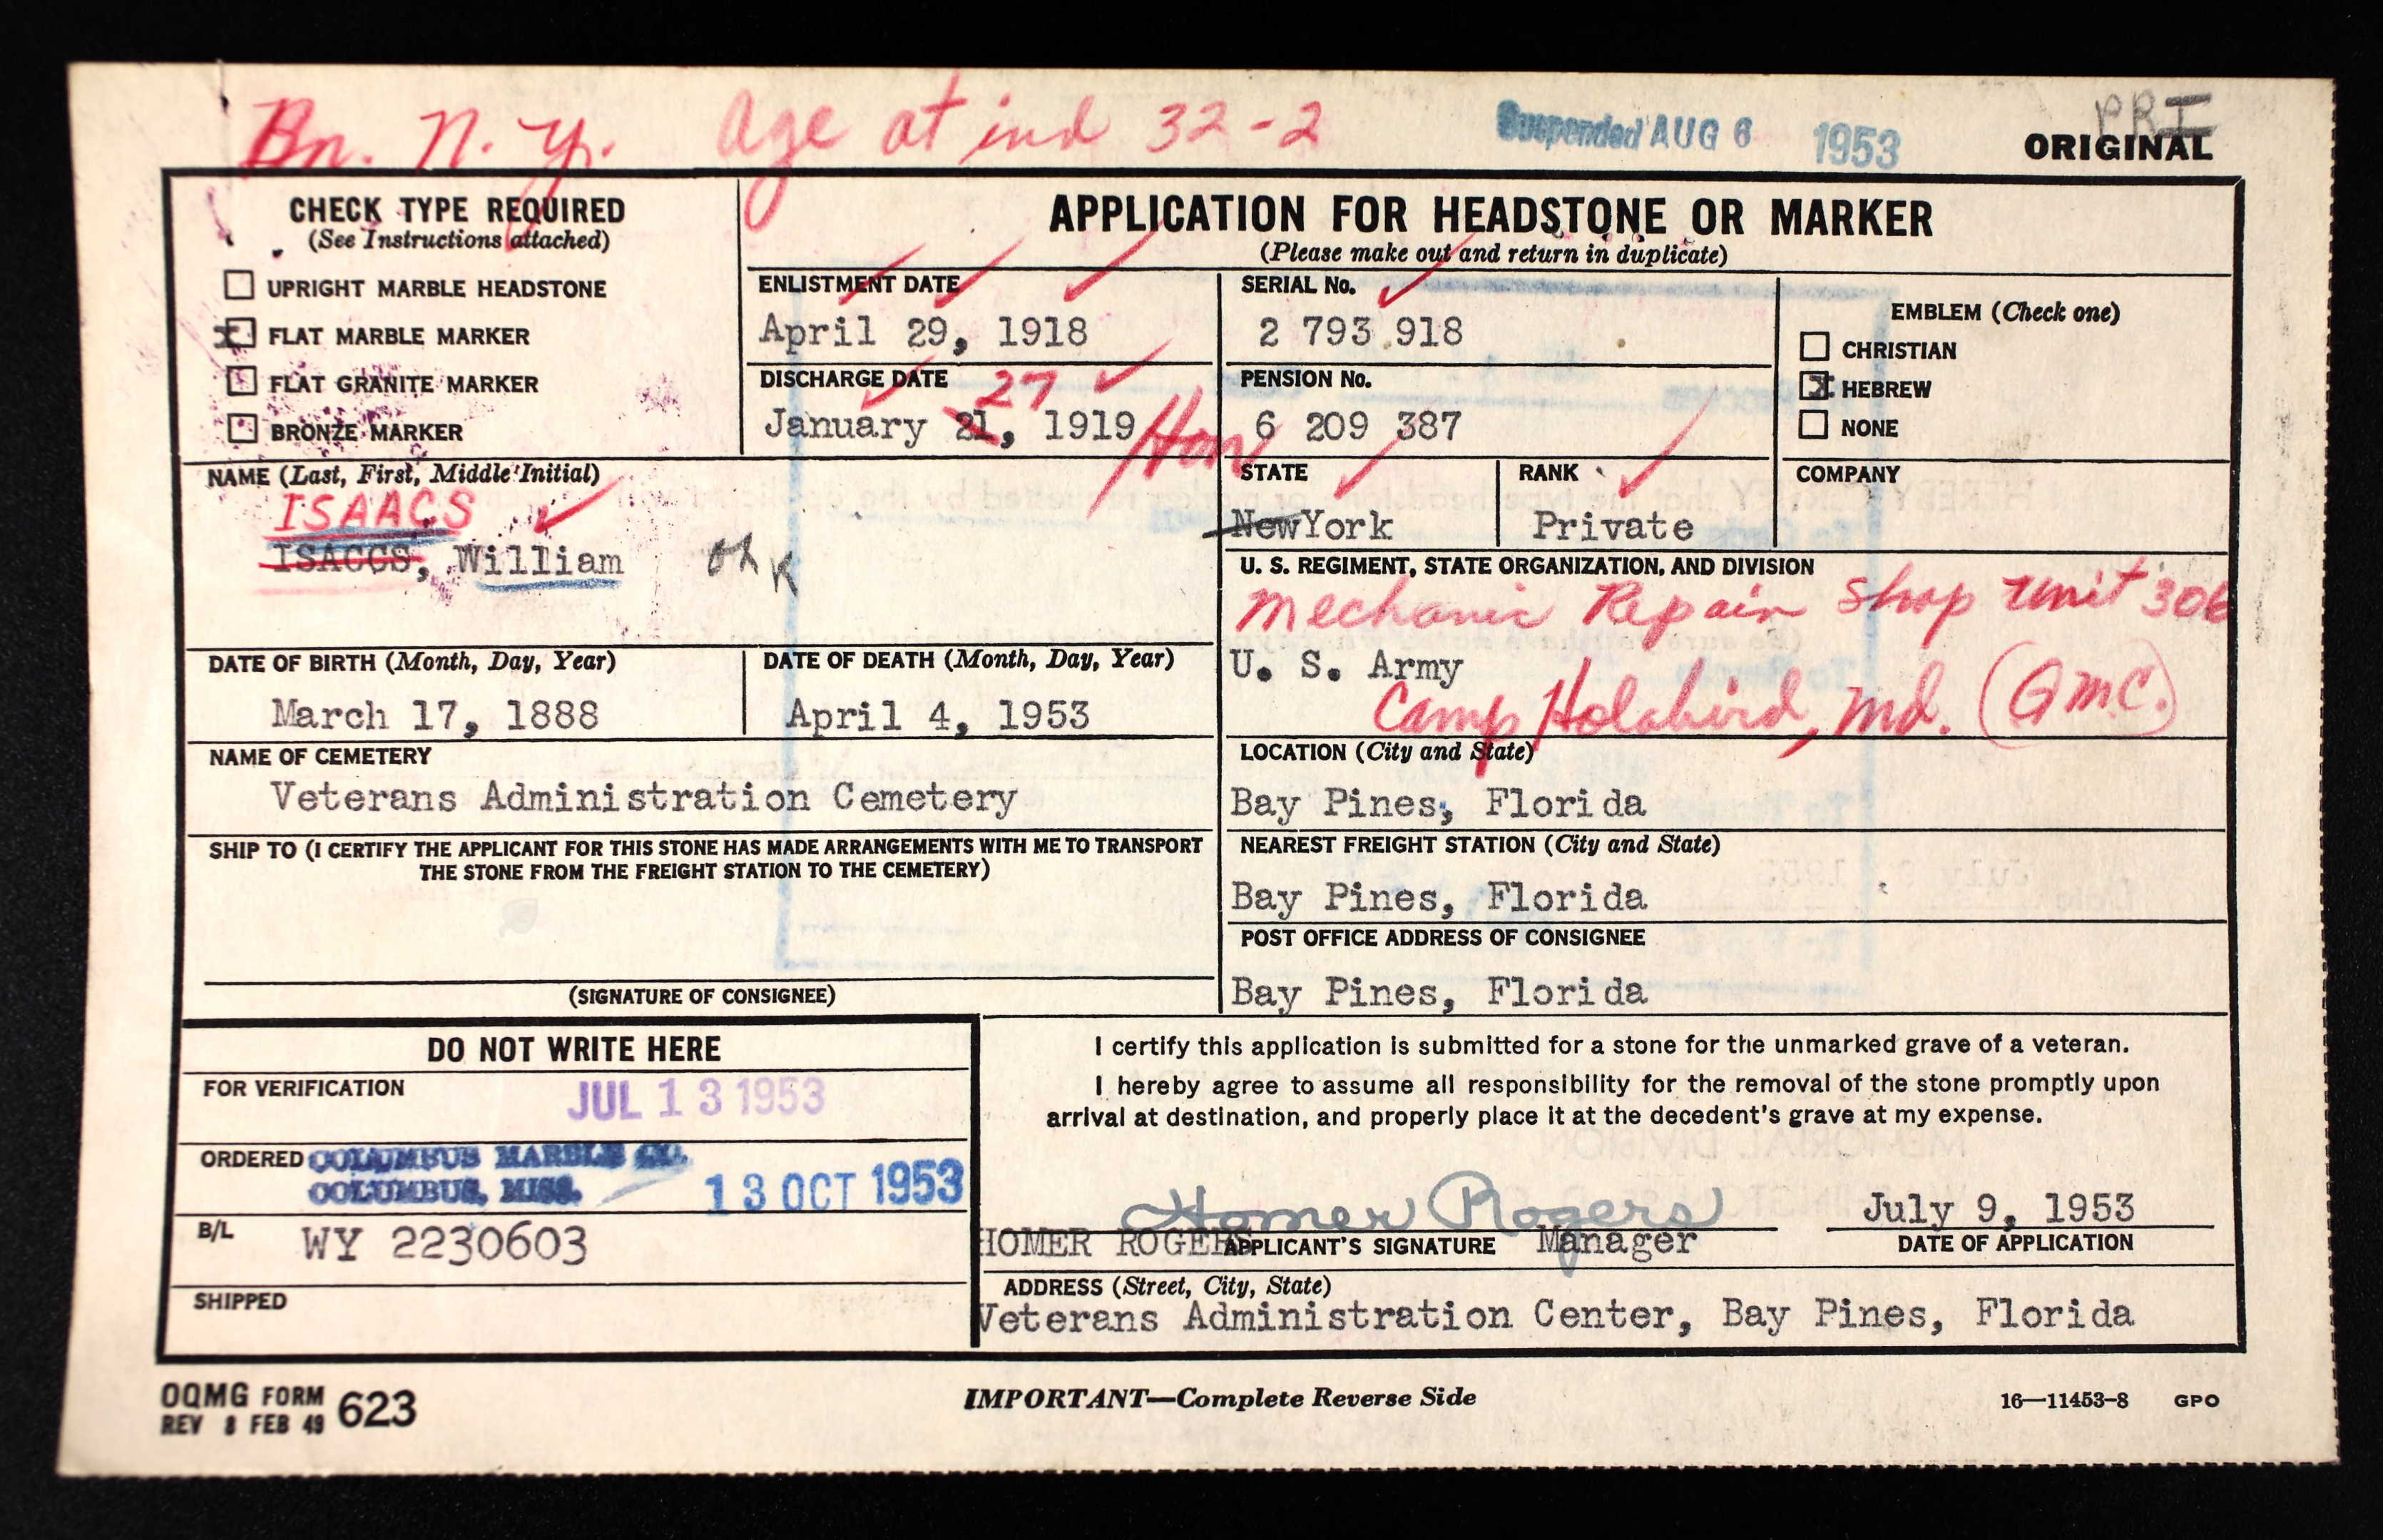 Bn. N. Y. age at ind 32-2
Suspended AUG 6 1953
PRI
ORIGINAL
CHECK TYPE REQUIRED
(See Instructions attached)
UPRIGHT MARBLE HEADSTONE
x FLAT MARBLE MARKER
FLAT GRANITE MARKER
BRONZE MARKER
APPLICATION FOR HEADSTONE OR MARKER
(Please make out and return in duplicate)
ENLISTMENT DATE
April 29, 1918
DISCHARGE DATE
27
January 21, 1919
Hon
SERIAL No.
2 793 918
PENSION No.
6 209 387
EMBLEM (Check one)
CHRISTIAN
x HEBREW
NONE
NAME (Last, First, Middle Initial)
ISAACS
ISACCS, William
OK
STATE
New York
RANK
Private
COMPANY
U. S. REGIMENT, STATE ORGANIZATION, AND DIVISION
Mechanic Repair Shop Unit 306
U. S. Army
Camp Holabird, Md. (QMC.)
DATE OF BIRTH (Month, Day, Year)
March 17, 1888
DATE OF DEATH (Month, Day, Year)
April 4, 1953
NAME OF CEMETERY
Veterans Administration Cemetery
LOCATION (City and State)
Bay Pines, Florida
SHIP TO (I CERTIFY THE APPLICANT FOR THIS STONE HAS MADE ARRANGEMENTS WITH ME TO TRANSPORT
THE STONE FROM THE FREIGHT STATION TO THE CEMETERY)
(SIGNATURE OF CONSIGNEE)
NEAREST FREIGHT STATION (City and State)
Bay Pines, Florida
POST OFFICE ADDRESS OF CONSIGNEE
Bay Pines, Florida
DO NOT WRITE HERE
FOR VERIFICATION
JUL 13 1953
ORDERED COLUMBUS MARBLE CO.
COLUMBUS, MISS. 13 OCT 1953
B/L WY 2230603
SHIPPED
I certify this application is submitted for a stone for the unmarked grave of a veteran.
I hereby agree to assume all responsibility for the removal of the stone promptly upon
arrival at destination, and properly place it at the decedent's grave at my expense.
Homer Rogers
HOMER ROGERS APPLICANT'S SIGNATURE Manager
July 9, 1953
DATE OF APPLICATION
ADDRESS (Street, City, State)
Veterans Administration Center, Bay Pines, Florida
OQMG FORM 623
REV 8 FEB 49
IMPORTANT—Complete Reverse Side
16—11453-8 GPO